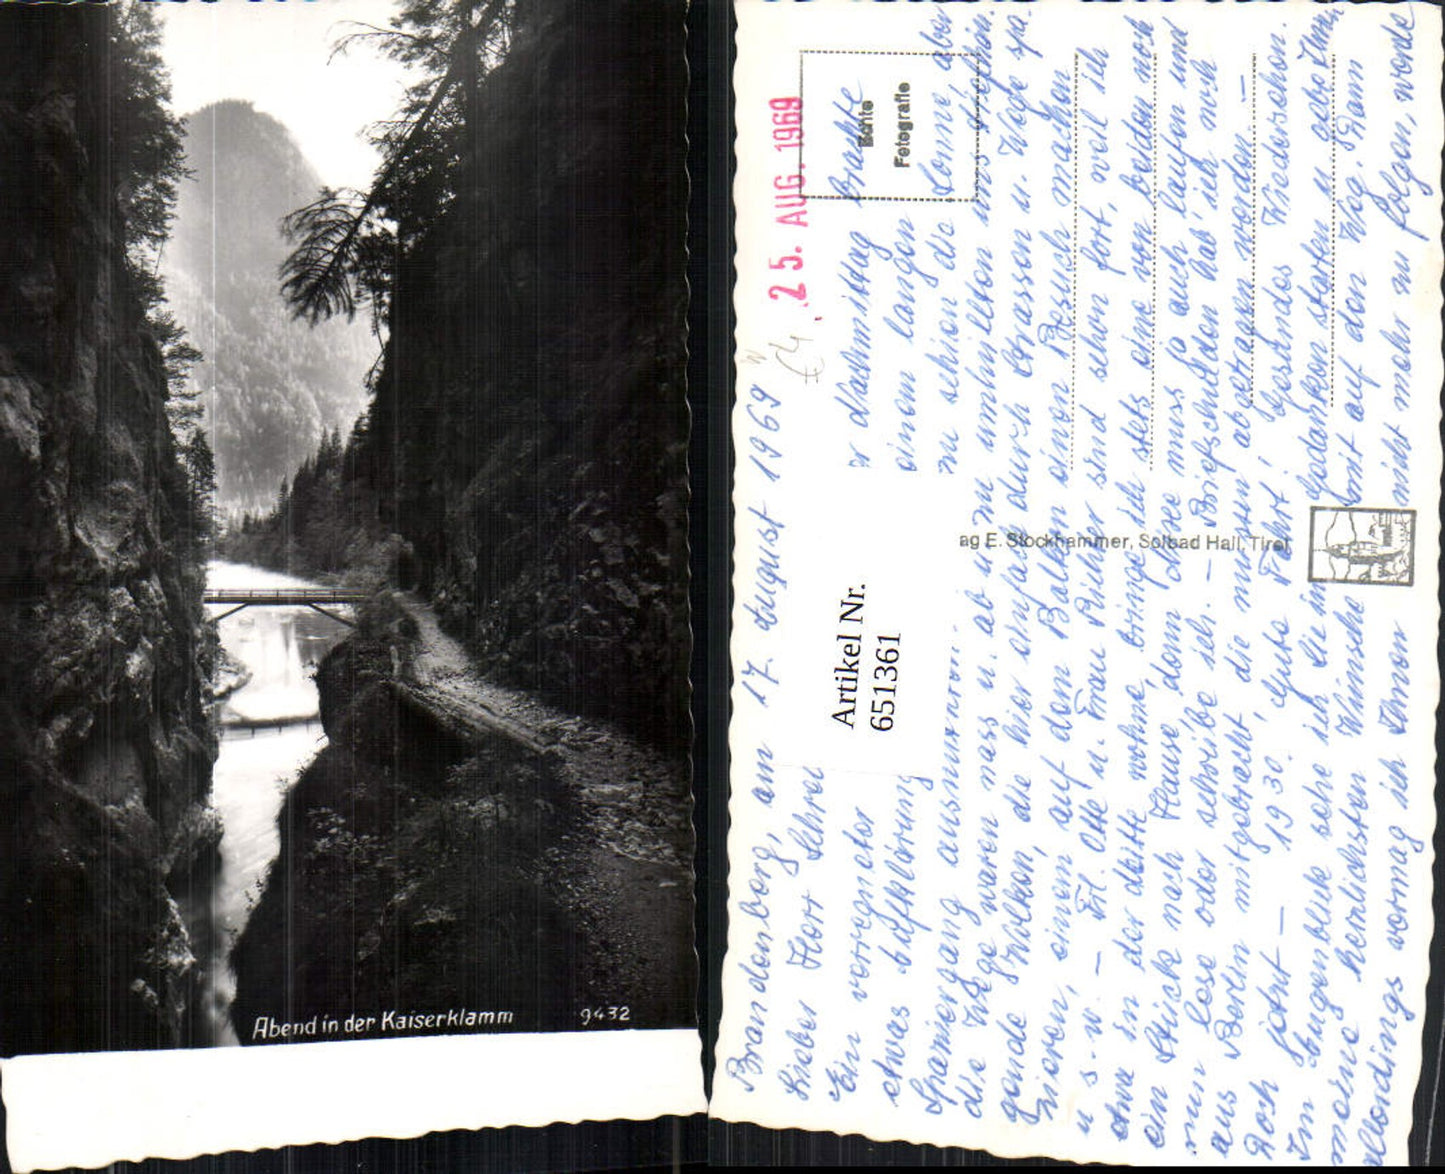 Abend in der Kaiserklamm
9432
25. AUG. 1969
Echte
Fotografie
Artikel Nr.
651361
ag E. Stockhammer, Solbad Hall, Tirol
Brandenberg, am 17. August 1969
Lieber Herr Lehrer
Ein verregneter Nachmittag brachte
etwas Aufklärung einen langen
Spaziergang auszunützen. zu schien die Sonne, aber
die Wege waren nass u. ab u. zu umhüllten uns tiefhän-
gende Wolken, die hier einfach durch Strassen u. Wege spa-
zieren, einen auf dem Balkon einen Besuch machen
u. s. w. — Frl. Otte u. Frau Richter sind schon fort, weil ich
etwa in der Mitte wohne, bringe ich stets eine von beiden noch
ein Stück nach Hause, denn Obsee muss ja auch laufen und
nun lese oder schreibe ich. — Briefschulden hab' ich noch
aus Berlin mitgebracht, die müssen abgetragen werden. —
Doch jetzt — 19 30. Gute Fahrt! Gesundes Wiedersehen.
Im Augenblick sehe ich Sie in Gedanken starten u. gebe Ihnen
meine herzlichsten Wünsche mit auf den Weg. Dann
allerdings vermag ich Ihnen nicht mehr zu folgen, werde